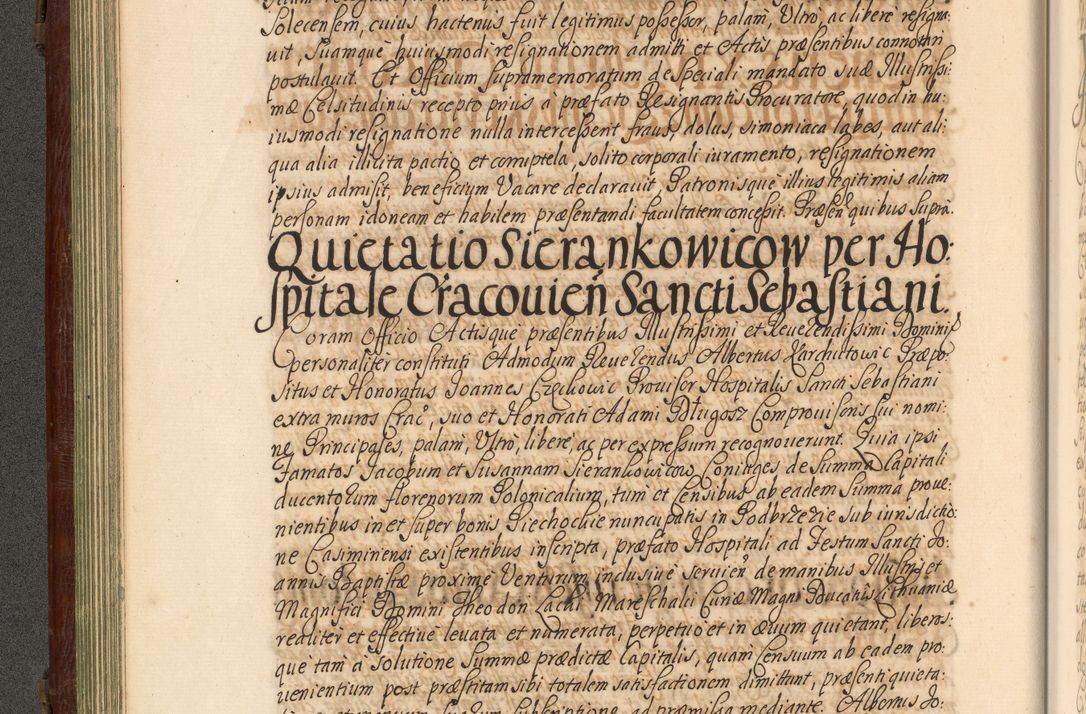 Solecensem, cuius hactenus fuit legitimus possessor, palam, Ultro, ac libere resigna:
uit, Suamque huiusmodi resignationem admitti et Actis præsentibus connotari
postulauit. Et Officium supramemoratum de speciali mandato suæ Illustrissi:
mæ Celsitudinis recepto prius à præfato Resignantis Procuratore, quod in hu:
iusmodi resignatione nulla intercessent fraus, dolus, simoniaca labes, aut ali:
qua alia illicita pactio et corruptela, solito corporali iuramento, resignationem
ipsius admisit, beneficium Vacare declarauit, Patronisque illius legitimis aliam
personam idoneam et habilem præsentandi facultatem concessit. Præsen̄ quibus supra.
Quietatio Sierankowicow per Ho:
spitale Cracouien̄ Sancti Sebastiani.
Coram Officio Actisque præsentibus Illustrissimi et Reuerendissimi Domini
personaliter constituti Admodum Reuerendus Albertus Karchutowic Præpo:
situs et Honoratus Joannes Czeikowic Prouisor Hospitalis Sancti Sebastiani
extra muros Crac̄, suo et Honorati Adami Długosz Comprouisoris sui nomi:
ne Principales, palam, Ultro, libere, ac per expressum recognouerunt. Quia ipsi
Famatos Jacobum et Susannam Sierankowicow Coniuges de Summa Capitali
ducentorum florenorum Polonicalium, tum et Censibus ab eadem Summa proue:
nientibus in et super bonis Piechockie nuncupatis in Podbrzezie sub iurisdictio:
ne Casimiriensi existentibus inscripta, præfato Hospitali ad Festum Sancti Jo:
annis Baptistæ proximè Venturum inclusiuè seruien̄ de manibus Illustris et
Magnifici Domini Theodori Lacki Mareschalci Curiæ Magni Ducatus Lithuaniæ
realiter et effectiuè leuata et numerata, perpetuo et in æuum quietant, liberos:
que tam à solutione Summæ prædictæ Capitalis, quam Censuum ab eadem pro:
uenientium post præstitam sibi totalem satisfactionem dimittunt, præsenti quieta:
subscriptione ad præmissa mediante. Albertus Jo: